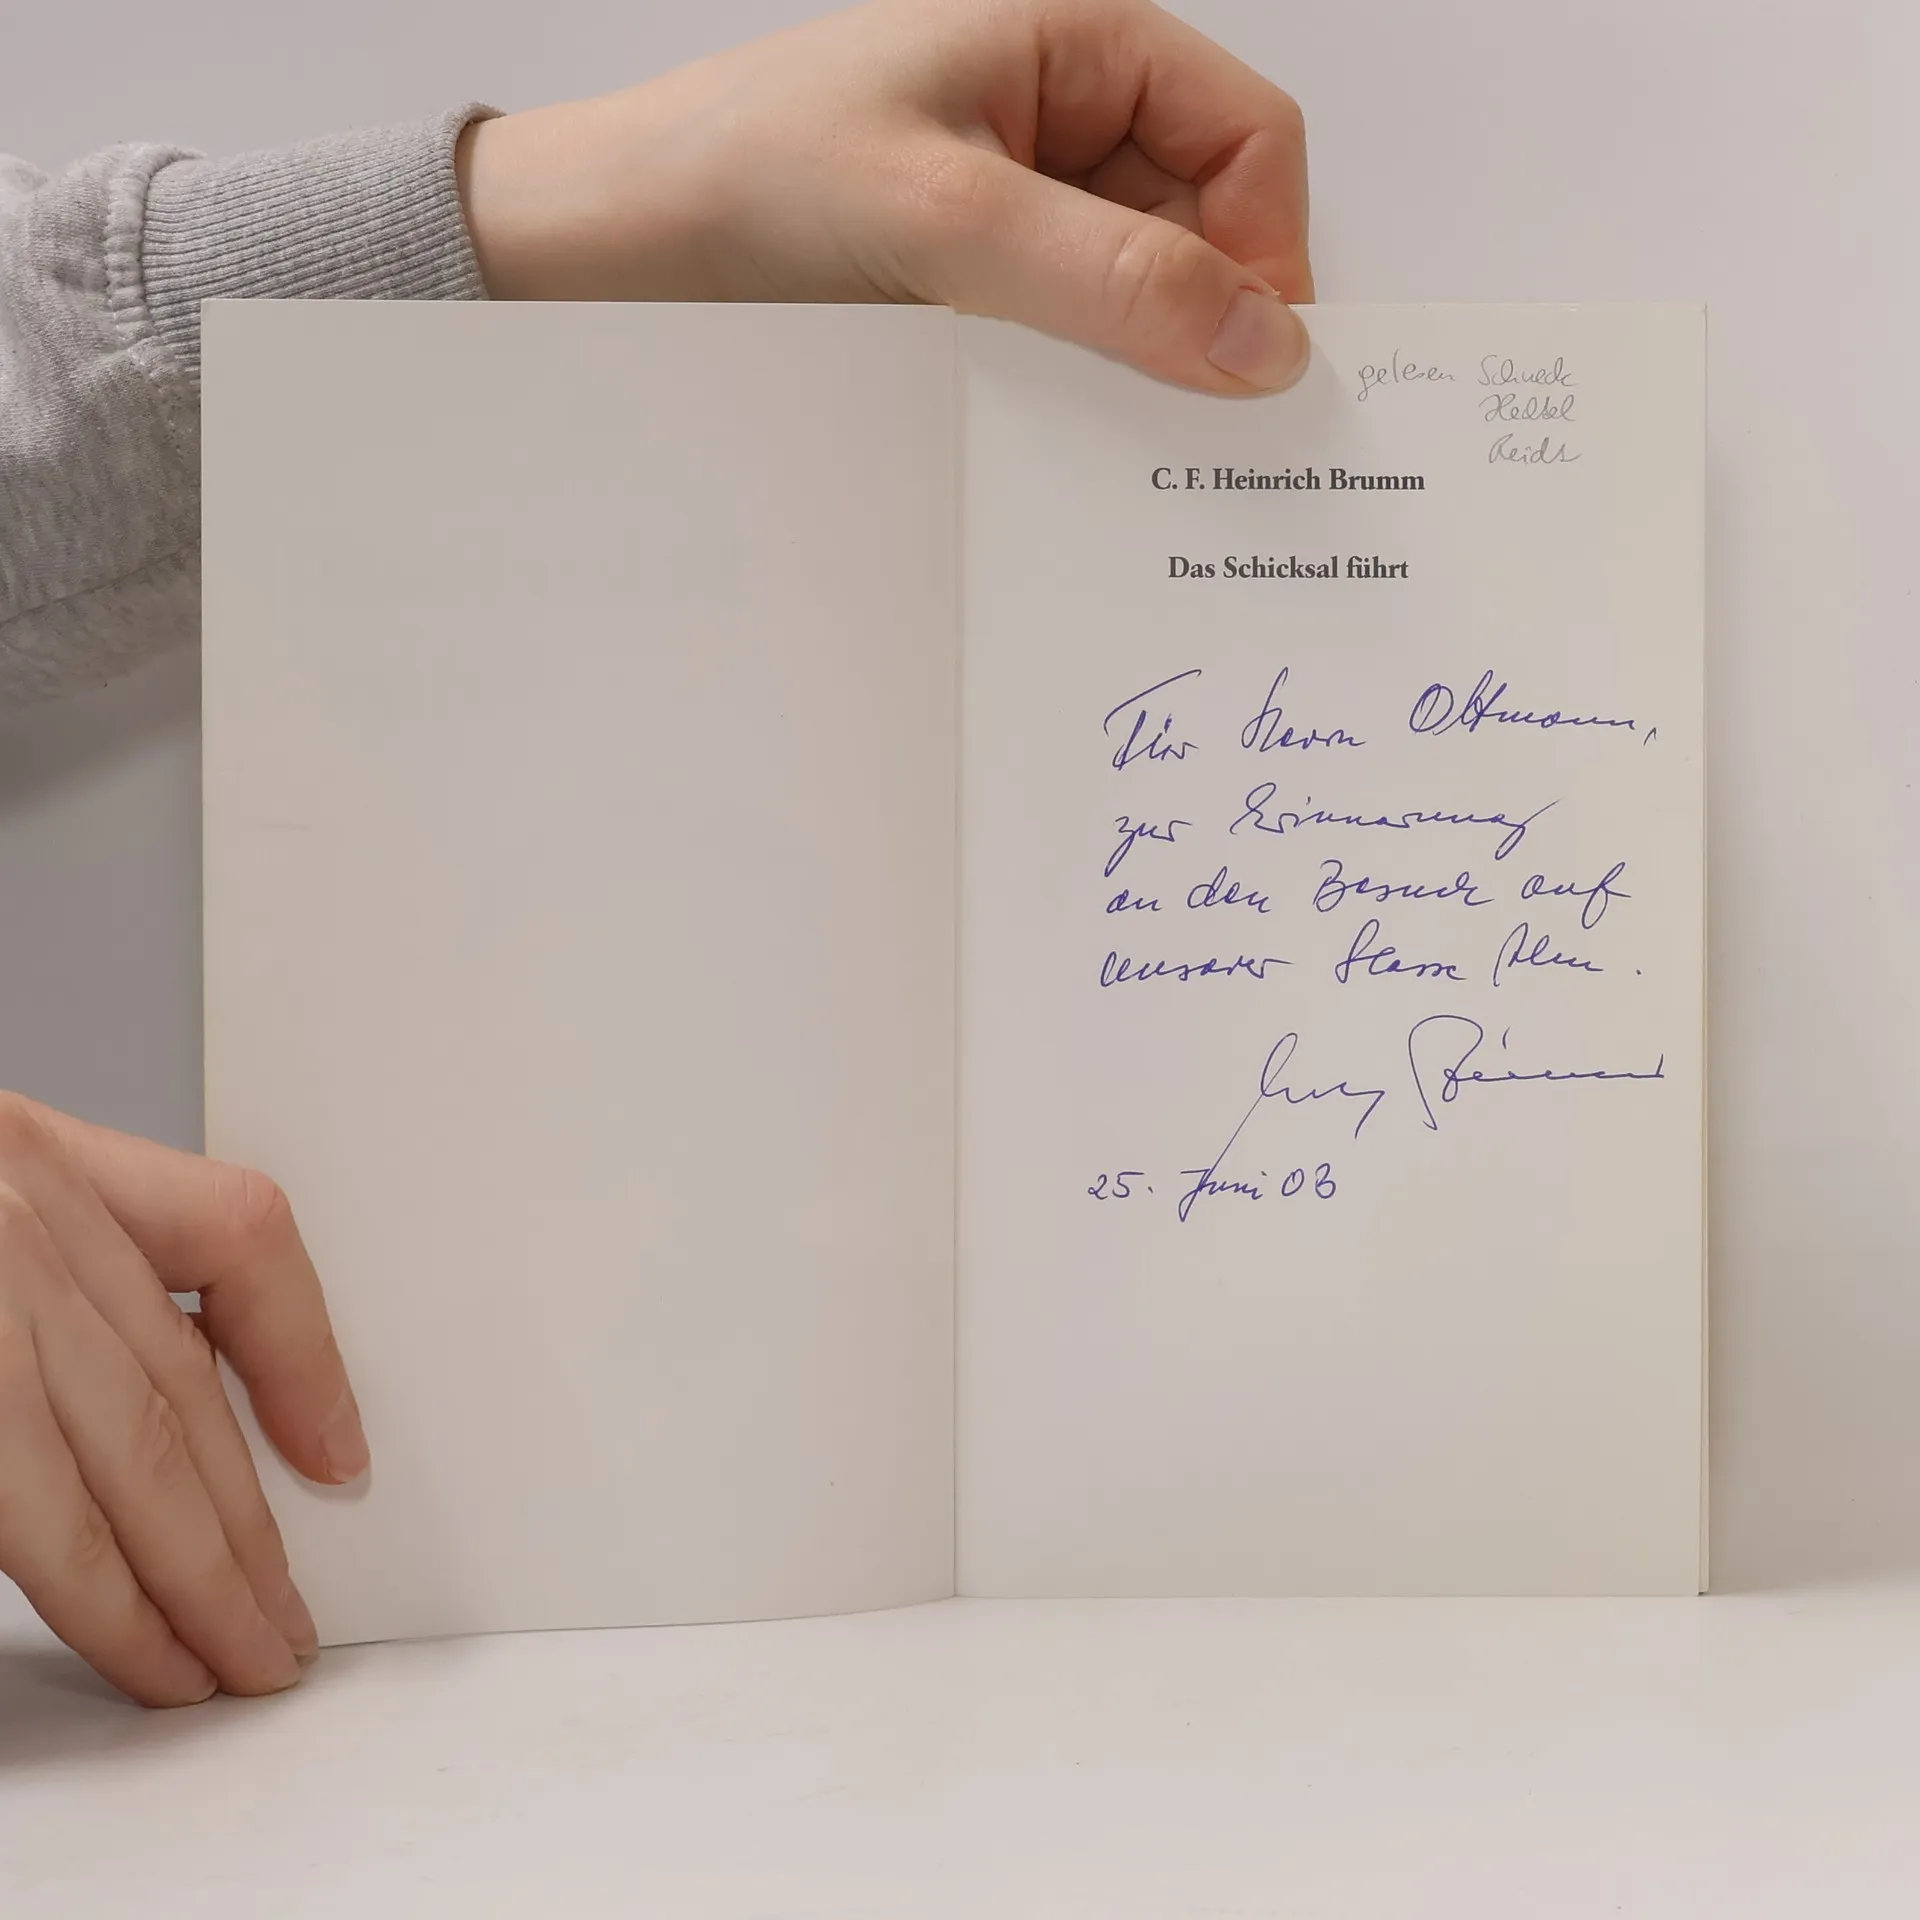 gelesen Schneck
C. F. Heinrich Brumm
Das Schicksal führt
Für Herrn Oltmann,
zur Erinnerung
an den Besuch auf
unserer Hazienda
25. Juni 03